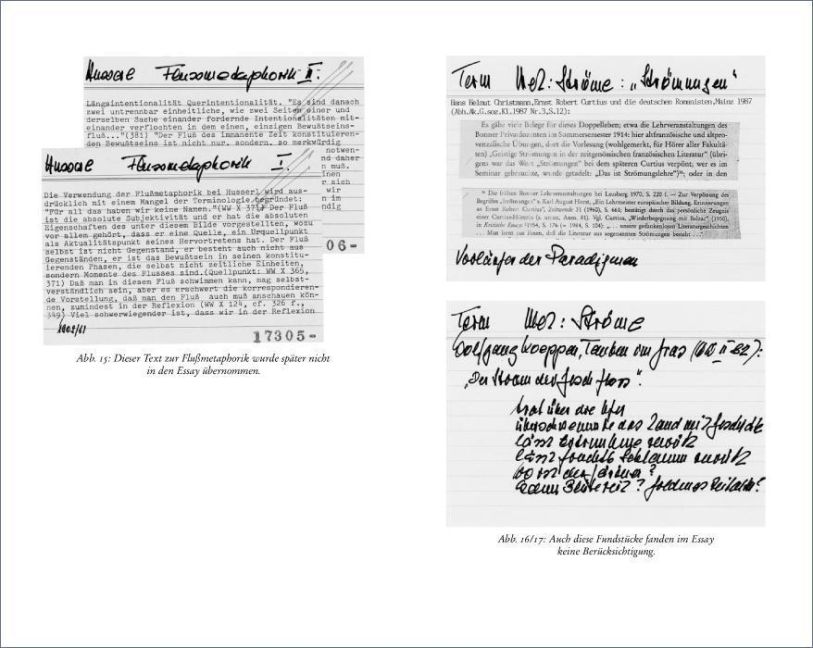 Husserl Flussmetaphorik II.
Längsintentionalität Querintentionalität. "Es sind danach
zwei untrennbar einheitliche, wie zwei Seiten einer und
derselben Sache einander fordernde Intentionalitäten mit-
einander verflochten in dem einen, einzigen Bewußtseins-
fluß..."(381) "Der Fluß des immanente Zeit konstituieren-
den Bewußtseins ist nicht nur, sondern, so merkwürdig
notwen-
nd daher
n muß.
inen
r sich
wir
n im
ndig
06-
Husserl Flussmetaphorik I.
Die Verwendung der Flußmetaphorik bei Husserl wird aus-
drücklich mit einem Mangel der Terminologie begründet:
"Für all das haben wir keine Namen."(WW X 371) Der Fluß
ist die absolute Subjektivität und er hat die absoluten
Eigenschaften des unter diesem Bilde vorgestellten, wozu
vor allem gehört, dass er eine Quelle, ein Urquellpunkt
als Aktualitätspunkt seines Hervortretens hat. Der Fluß
selbst ist nicht Gegenstand, er besteht auch nicht aus
Gegenständen, er ist das Bewußtsein in seinen konstitu-
ierenden Phasen, die selbst nicht zeitliche Einheiten,
sondern Momente des Flusses sind.(Quellpunkt: WW X 365,
371) Daß man in diesem Fluß schwimmen kann, mag selbst-
verständlich sein, aber es erschwert die korrespondieren-
de Vorstellung, daß man den Fluß auch muß anschauen kön-
nen, zumindest in der Reflexion (WW X 124, cf. 326 f.,
349) Viel schwerwiegender ist, dass wir in der Reflexion
17305-
Abb. 15: Dieser Text zur Flußmetaphorik wurde später nicht
in den Essay übernommen.
Term Met: Ströme: „Strömungen"
Hans Helmut Christmann,Ernst Robert Curtius und die deutschen Romanisten,Mainz 1987
(Abh.Ak.G.soz.Kl.1987 Nr.3,S.12):
Es gäbe viele Belege für dieses Doppelleben; etwa die Lehrveranstaltungen des
Bonner Privatdozenten im Sommersemester 1914: hier altfranzösische und altpro-
venzalische Übungen, dort die Vorlesung (wohlgemerkt, für Hörer aller Fakultä-
ten) „Geistige Strömungen in der zeitgenössischen französischen Literatur" (übri-
gens war das Wort „Strömungen" bei dem späteren Curtius verpönt; wer es im
Seminar gebrauchte, wurde getadelt: „Das ist Strömungslehre")⁶; oder in den
⁶ Die frühen Bonner Lehrveranstaltungen bei Lausberg 1970, S. 220 f. — Zur Verpönung des
Begriffes
Karl August Horst, „Ein Lehrmeister europäischer Bildung. Erinnerungen
an Ernst Robert Curtius",
bestätigt durch das persönliche Zeugnis
Vgl. Curtius, „Wiederbegegnung mit Balzac" (1950),
in Kritische Essays
Vorläufer der Paradigmen
Term Met: Ströme
Wolfgang Koeppen, Tauben im Gras
„Der Strom der Geschichte
trat über die Ufer
überschwemmte das Land mit Geschichte
liess Ertrunkene zurück
liess Schlamm zurück
Abb. 16/17: Auch diese Fundstücke fanden im Essay
keine Berücksichtigung.